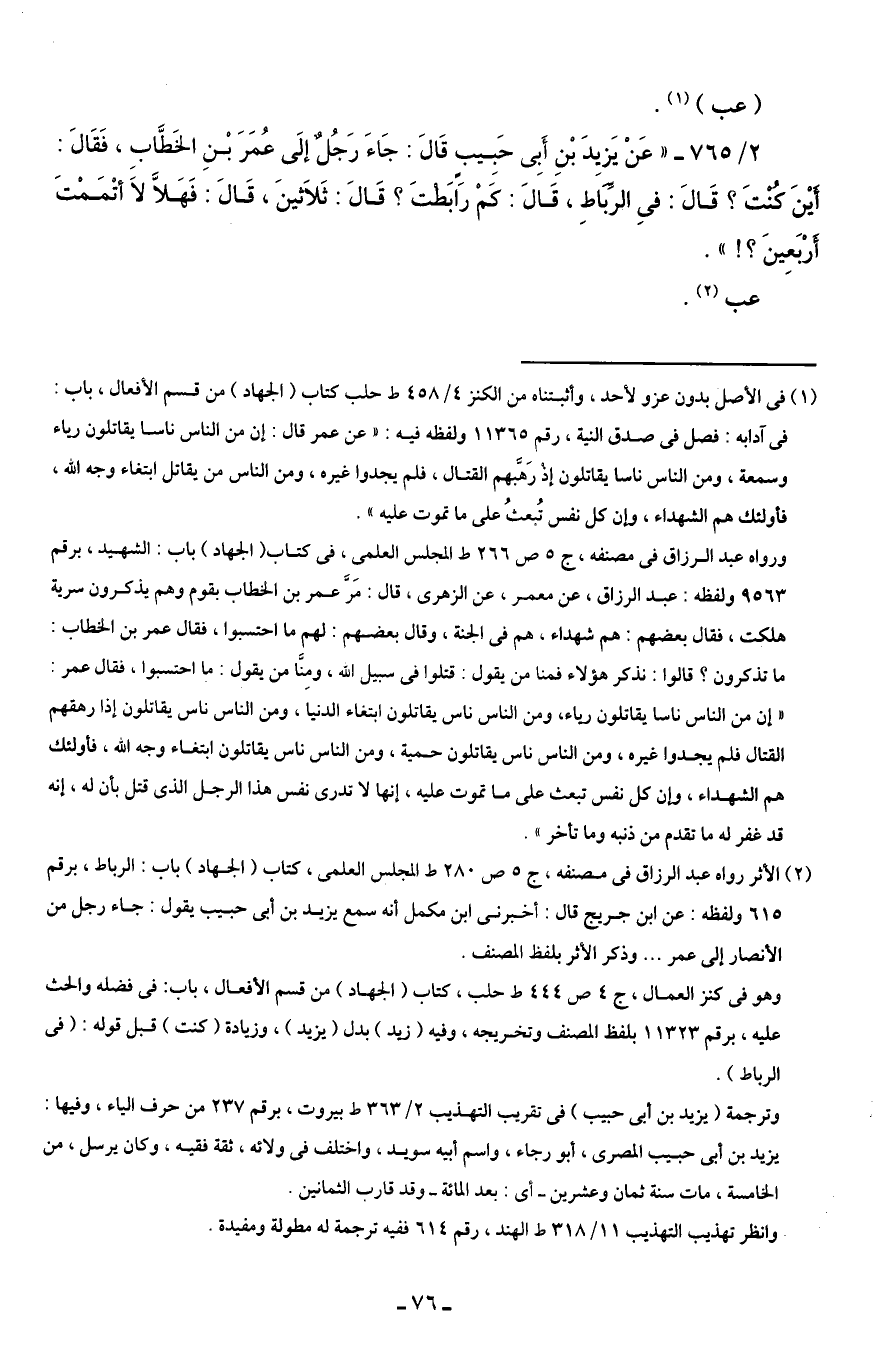 ( عب ) (١) .
٢/ ٧٦٥ ـ « عَنْ يَزِيدَ بْنِ أَبِى حَبِيبٍ قَالَ : جَاءَ رَجُلٌ إِلَى عُمَرَ بْنِ الخَطَّابِ ، فَقَالَ :
أَيْنَ كُنْتَ ؟ قَالَ : فى الرِّبَاطِ ، قَالَ : كَمْ رَابَطْتَ ؟ قَالَ : ثَلاَثينَ ، قَالَ : فَهَلاَّ لاَ أَتْمَمْتَ
أَرْبَعِينَ ؟! » .
عب (٢) .
(١) فى الأصل بدون عزو لأحد ، وأثبتناه من الكنز ٤/ ٤٥٨ ط حلب كتاب ( الجهاد ) من قسم الأفعال ، باب :
فى آدابه : فصل فى صدق النية ، رقم ١١٣٦٥ ولفظه فيه : « عن عمر قال : إن من الناس ناسا يقاتلون رياء
وسمعة ، ومن الناس ناسا يقاتلون إذْ رَهَبَهم القتال ، فلم يجدوا غيره ، ومن الناس من يقاتل ابتغاء وجه الله ،
فأولئك هم الشهداء ، وإن كل نفس تُبعثُ على ما تموت عليه » .
ورواه عبد الرزاق فى مصنفه ، ج ٥ ص ٢٦٦ ط المجلس العلمى ، فى كتاب( الجهاد ) باب : الشهيد ، برقم
٩٥٦٣ ولفظه : عبد الرزاق ، عن معمر ، عن الزهرى ، قال : مَرَّ عمر بن الخطاب بقوم وهم يذكرون سرية
هلكت ، فقال بعضهم : هم شهداء ، هم فى الجنة ، وقال بعضهم : لهم ما احتسبوا ، فقال عمر بن الخطاب :
ما تذكرون ؟ قالوا : نذكر هؤلاء فمنا من يقول : قتلوا فى سبيل الله ، ومنَّا من يقول : ما احتسبوا ، فقال عمر :
« إن من الناس ناسا يقاتلون رياء، ومن الناس ناس يقاتلون ابتغاء الدنيا ، ومن الناس ناس يقاتلون إذا رهقهم
القتال فلم يجدوا غيره ، ومن الناس ناس يقاتلون حمية ، ومن الناس ناس يقاتلون ابتغاء وجه الله ، فأولئك
هم الشهداء ، وإن كل نفس تبعث على ما تموت عليه ، إنها لا تدرى نفس هذا الرجل الذى قتل بأن له ، إنه
قد غفر له ما تقدم من ذنبه وما تأخر » .
(٢) الأثر رواه عبد الرزاق فى مصنفه ، ج ٥ ص ٢٨٠ ط المجلس العلمى ، كتاب ( الجهاد ) باب : الرباط ، برقم
٦١٥ ولفظه : عن ابن جريج قال : أخبرنى ابن مكمل أنه سمع يزيد بن أبى حبيب يقول : جاء رجل من
الأنصار إلى عمر ... وذكر الأثر بلفظ المصنف .
وهو فى كنز العمال ، ج ٤ ص ٤٤٤ ط حلب ، كتاب ( الجهاد ) من قسم الأفعال ، باب: فى فضله والحث
عليه ، برقم ١١٣٢٣ بلفظ المصنف وتخريجه ، وفيه ( زيد ) بدل ( يزيد ) ، وزيادة ( كنت ) قبل قوله : ( فى
الرباط ) .
وترجمة ( يزيد بن أبى حبيب ) فى تقريب التهذيب ٢/ ٣٦٣ ط بيروت ، برقم ٢٣٧ من حرف الياء ، وفيها :
يزيد بن أبى حبيب المصرى ، أبو رجاء ، واسم أبيه سويد ، واختلف فى ولائه ، ثقة فقيه ، وكان يرسل ، من
الخامسة ، مات سنة ثمان وعشرين ـ أى : بعد المائة ـ وقد قارب الثمانين .
وانظر تهذيب التهذيب ١١/ ٣١٨ ط الهند ، رقم ٦١٤ ففيه ترجمة له مطولة ومفيدة .
ـ ٧٦ ـ